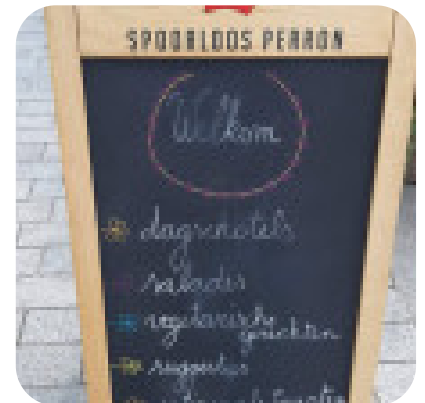 SPOORLOOS PERRON
Welkom
dagschotels
salades
vegetarische
gerechten
suggesties